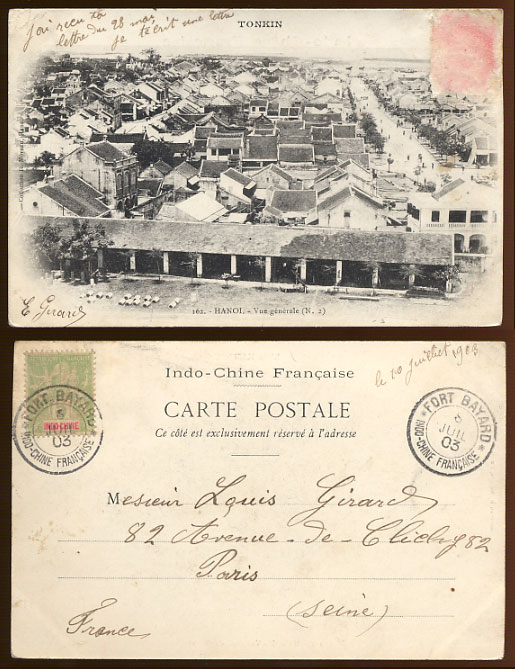 TONKIN
j'ai reçu ta
lettre du 28 mai
je t'écrit une lettre
162. - HANOI. - Vue générale (N. 2)
E Girard
INDO-CHINE
FORT BAYARD
8
JUIL
03
INDO-CHINE FRANÇAISE
le 10 juillet 1903
Indo-Chine Française
CARTE POSTALE
Ce côté est exclusivement réservé à l'adresse
FORT BAYARD
8
JUIL
03
INDO-CHINE FRANÇAISE
Mesieur Louis Girard
82 Avenue-de-Clichy 82
Paris
(Seine)
France